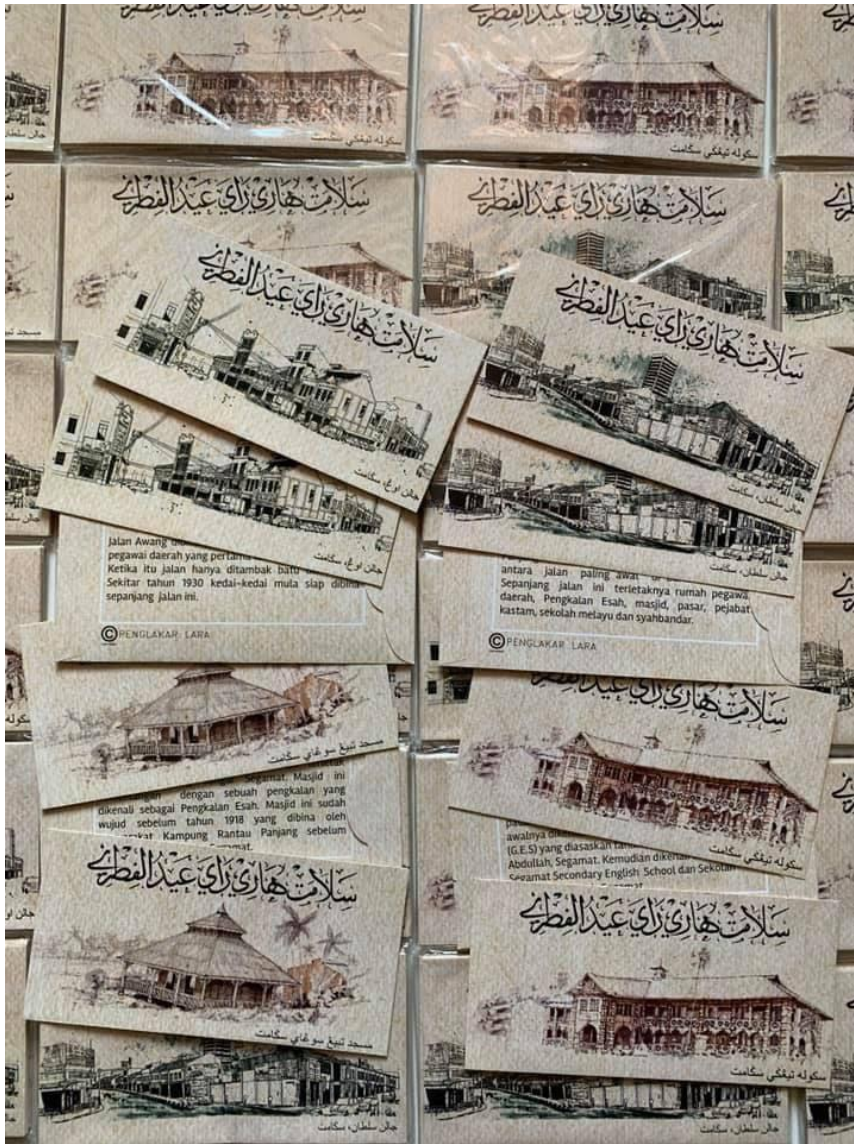 سكوله تيڠکي سگامت
سكوله تيڠکي سگامت
سلامت هاري راي عيدالفطري
سلامت هاري راي عيدالفطري
سلامت هاري راي عيدالفطري
سلامت هاري راي عيدالفطري
جالن اوڠ، سگامت
جالن سلطان، سگامت
جالن اوڠ، سگامت
جالن سلطان، سگامت
Jalan Awang
pegawai daerah yang pertama
Ketika itu jalan hanya ditambak batu
Sekitar tahun 1930 kedai-kedai mula siap dibina
sepanjang jalan ini.
© PENGLAKAR LARA
antara jalan paling awal
Sepanjang jalan ini terletaknya rumah pegawai
daerah, Pengkalan Esah, masjid, pasar, pejabat
kastam, sekolah melayu dan syahbandar.
© PENGLAKAR LARA
مسجد تبيڠ سوڠاي سگامت
سلامت هاري راي عيدالفطري
سكوله تيڠکي سگامت
Segamat. Masjid ini
dengan sebuah pengkalan yang
dikenali sebagai Pengkalan Esah. Masjid ini sudah
wujud sebelum tahun 1918 yang dibina oleh
Kampung Rantau Panjang sebelum
awalnya
(G.E.S) yang diasaskan
Abdullah, Segamat. Kemudian
Segamat Secondary English School dan Sekolah
سلامت هاري راي عيدالفطري
مسجد تبيڠ سوڠاي سگامت
سلامت هاري راي عيدالفطري
سكوله تيڠکي سگامت
جالن سلطان، سگامت